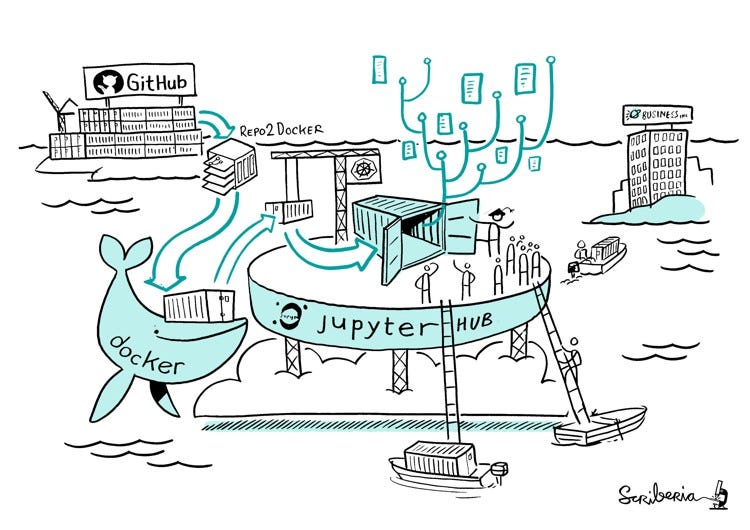 GitHub
REPO2DOCKER
BUSINESS INC.
docker
jupyter HUB
Scriberia